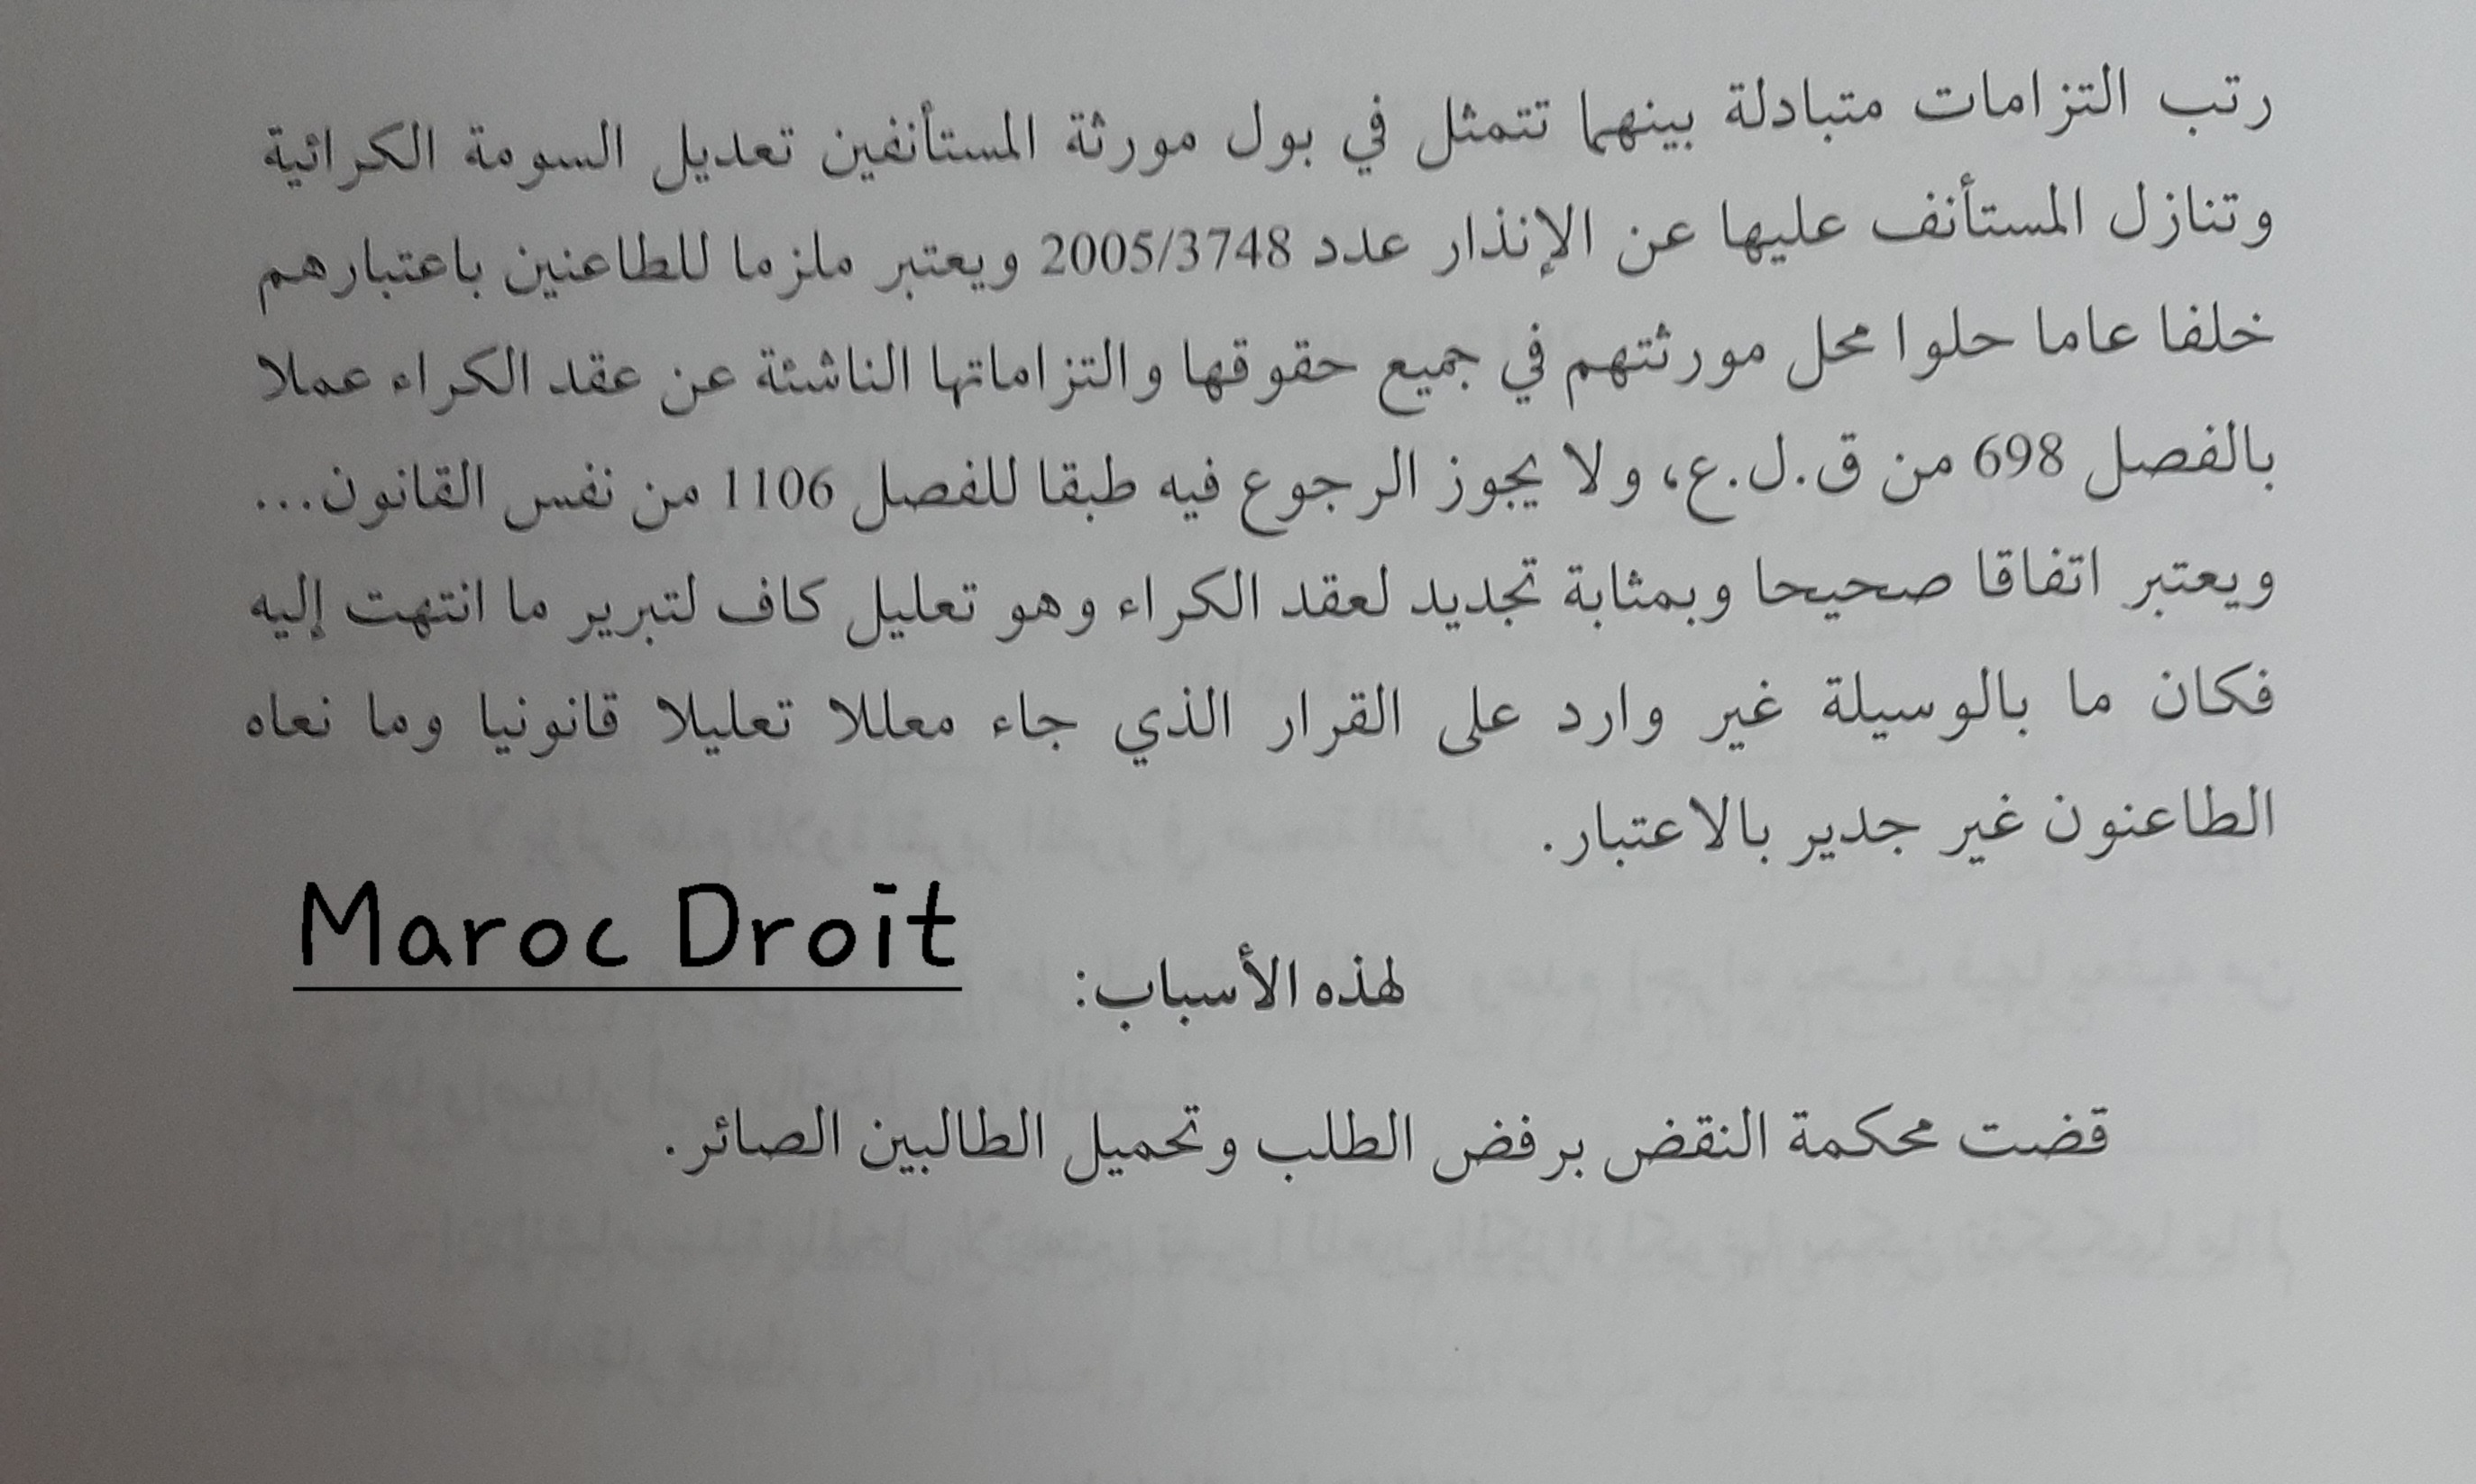 رتب التزامات متبادلة بينهما تتمثل في بول مورثة المستأنفين تعديل السومة الكرائية
وتنازل المستأنف عليها عن الإنذار عدد 2005/3748 ويعتبر ملزما للطاعنين باعتبارهم
خلفا عاما حلوا محل مورثتهم في جميع حقوقها والتزاماتها الناشئة عن عقد الكراء عملا
بالفصل 698 من ق.ل.ع، ولا يجوز الرجوع فيه طبقا للفصل 1106 من نفس القانون...
ويعتبر اتفاقا صحيحا وبمثابة تجديد لعقد الكراء وهو تعليل كاف لتبرير ما انتهت إليه
فكان ما بالوسيلة غير وارد على القرار الذي جاء معللا تعليلا قانونيا وما نعاه
الطاعنون غير جدير بالاعتبار.
Maroc Droit
لهذه الأسباب:
قضت محكمة النقض برفض الطلب وتحميل الطالبين الصائر.